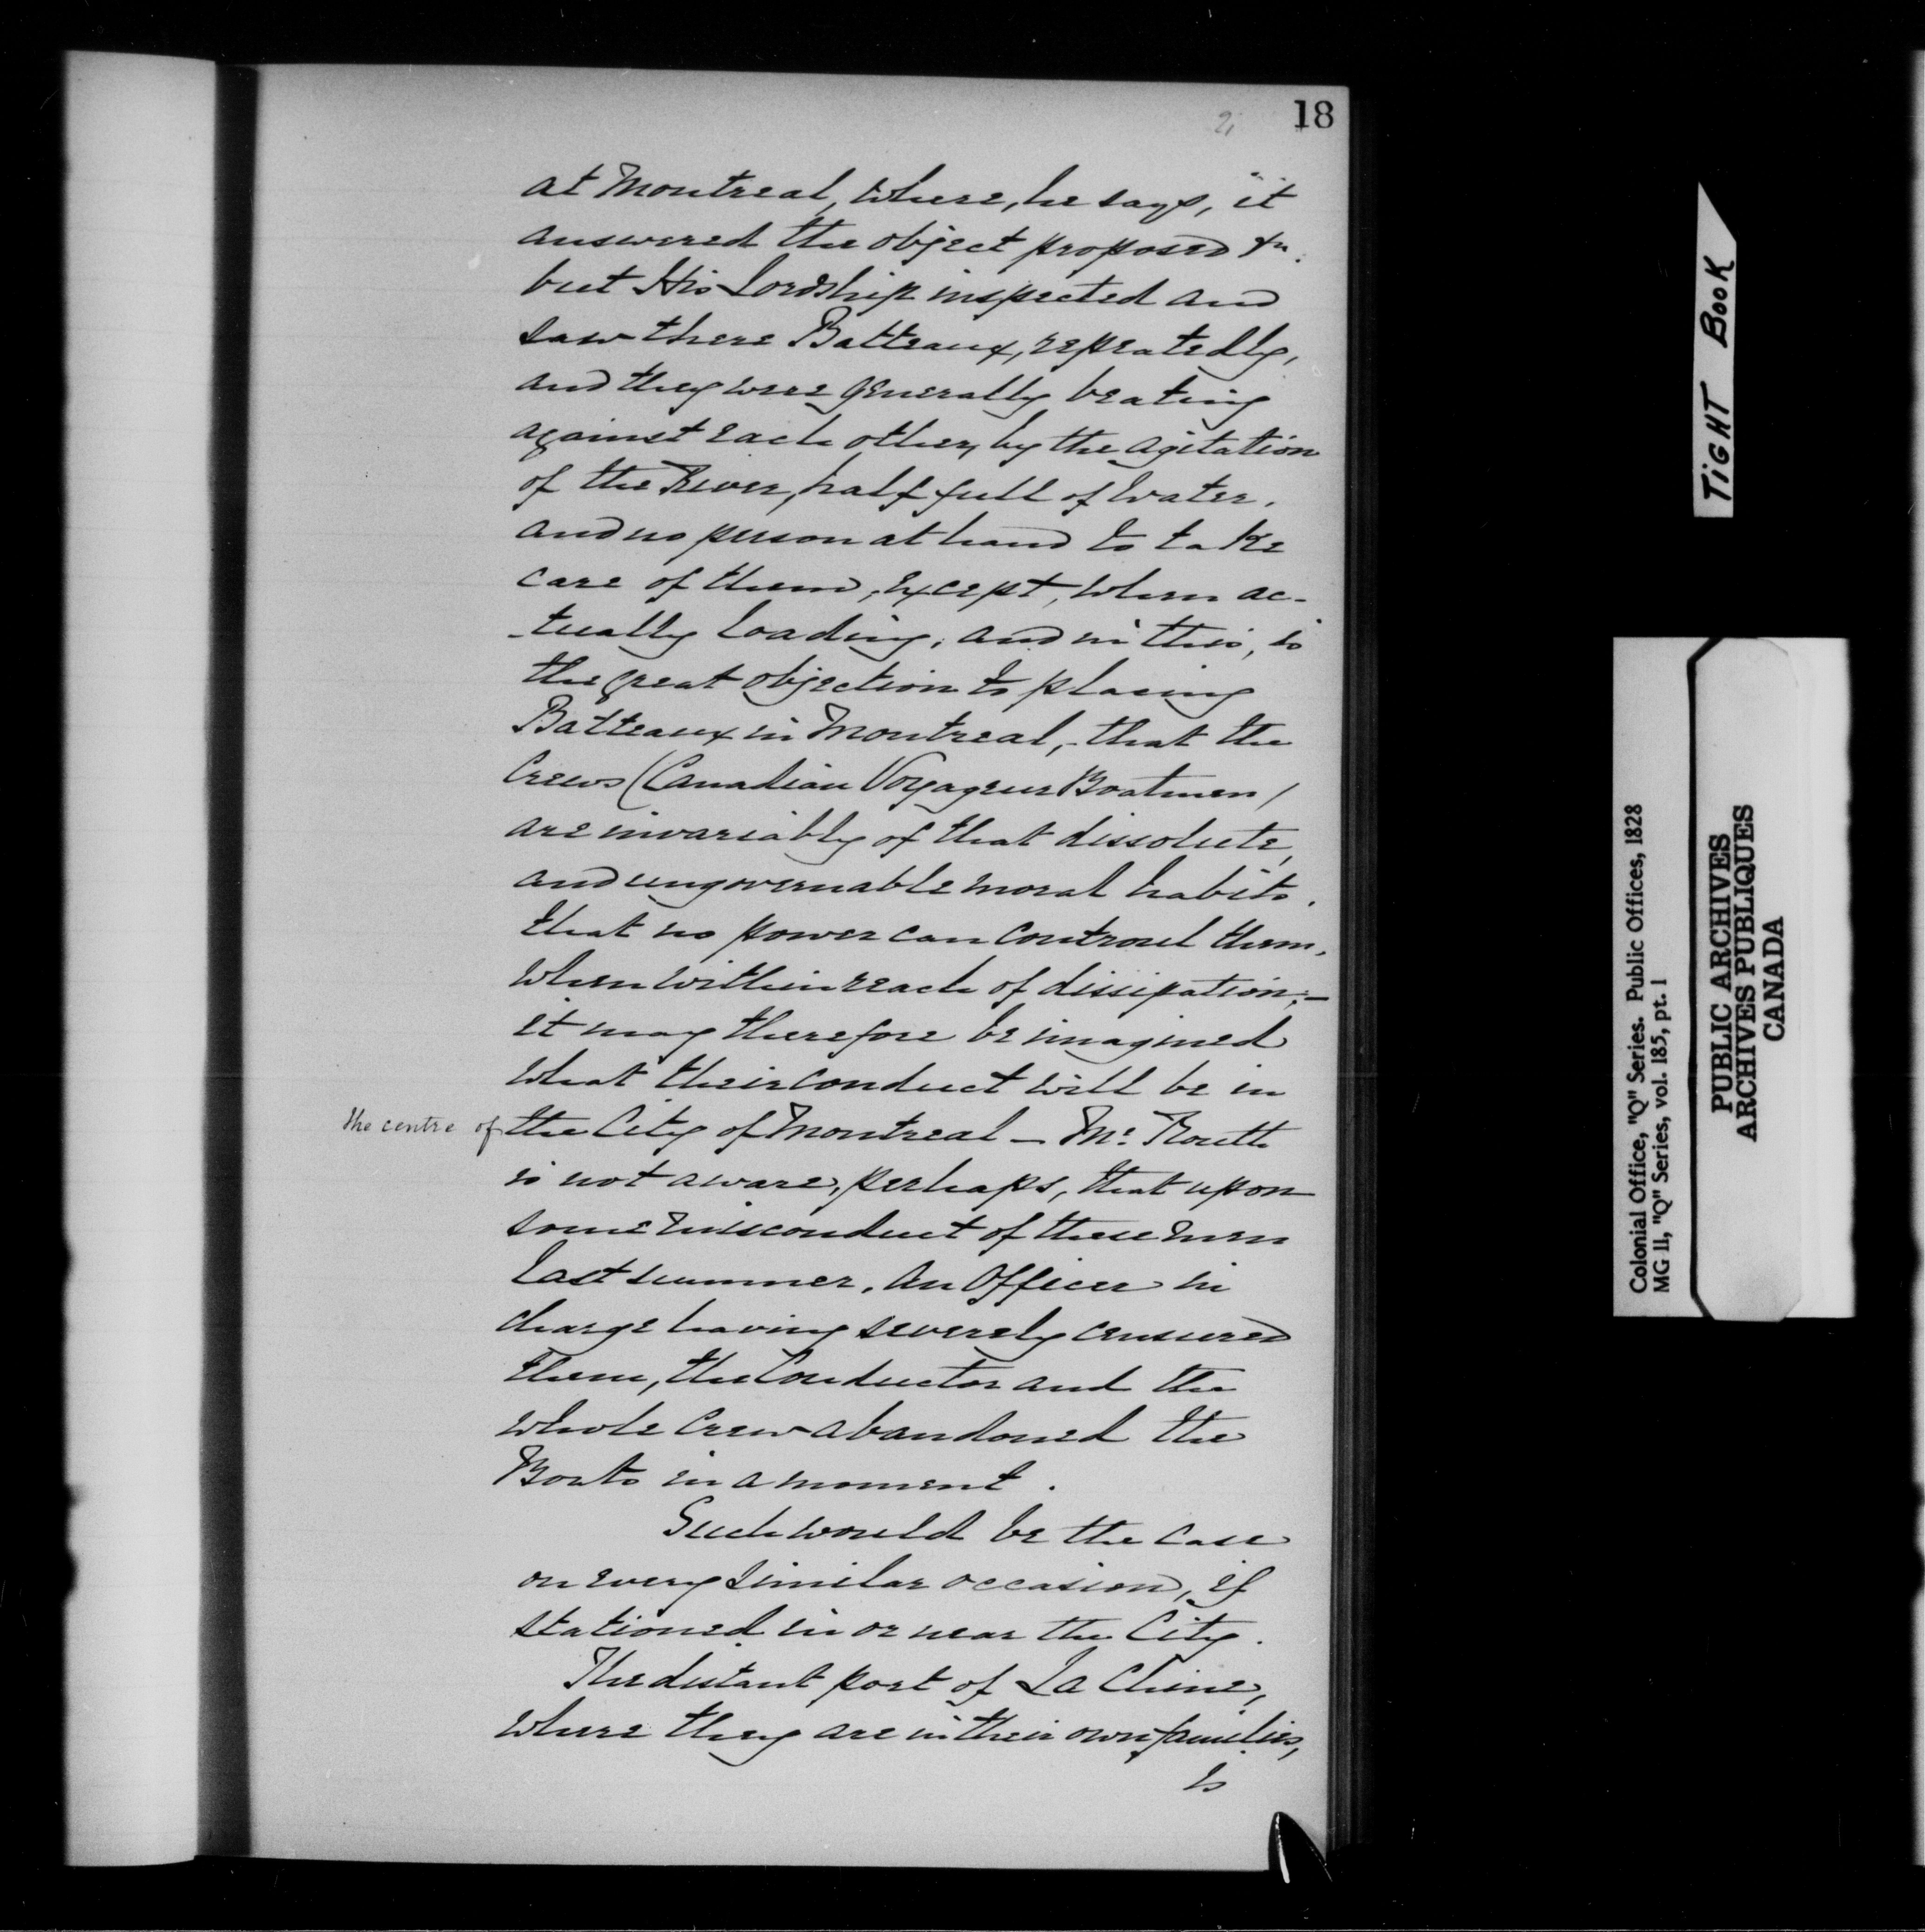 18
2,
at Montreal, where, he says, "it
answered the object proposed &c.
but His Lordship inspected and
saw there Batteaux, repeatedly,
and they were generally beating
against each other, by the agitation
of the River, half full of water,
and no person at hand to take
care of them, except, when ac-
-tually loading, and in this, is
the great objection to placing
Batteaux in Montreal, - that the
Crews (Canadian Voyageur Boatmen)
are invariably of that dissolute,
and ungovernable moral habits,
that no power can controul them,
when within reach of dissipation; -
it may therefore be imagined
what their conduct will be in
the centre of the City of Montreal - Mr. Routh
is not aware, perhaps, that upon
some misconduct of these men
last summer, an Officer in
charge having severely censured
them, the Conductor and the
whole Crew abandoned the
Boats in a moment.
Such would be the case
on every similar occasion, if
stationed in or near the City.
The distant post of La Chine,
where they are in their own families,
is
TIGHT BOOK
Colonial Office, "Q" Series. Public Offices, 1828
MG 11, "Q" Series, vol. 185, pt. 1
PUBLIC ARCHIVES
ARCHIVES PUBLIQUES
CANADA